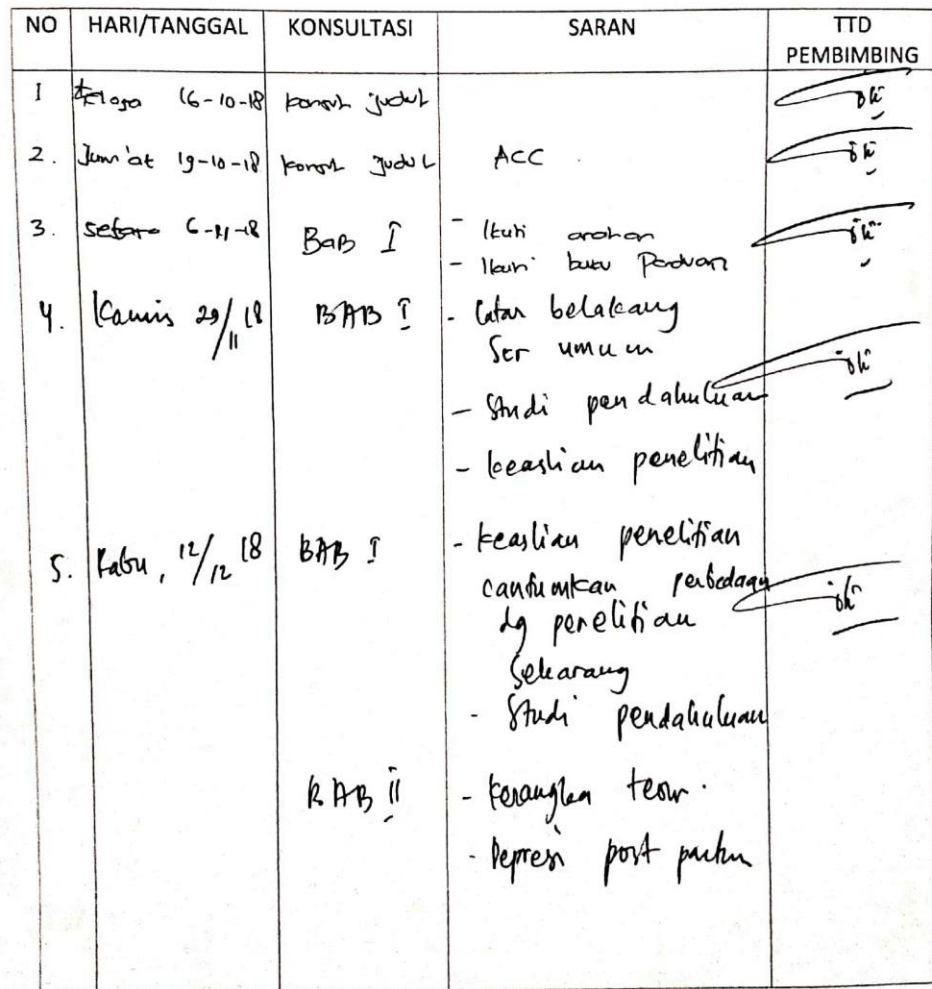 NO HARI/TANGGAL KONSULTASI SARAN TTD PEMBIMBING
1 16-10-18 konsul judul
2. Jum'at 19-10-18 konsul judul ACC
3. 6-11-18 BaB I - Ikuti arahan
- Ikuti buku Panduan
4. Kamis 29/11 18 BAB I - latar belakang
umum
- Studi pendahuluan
- keaslian penelitian
5. Rabu, 12/12 18 BAB I - keaslian penelitian
cantumkan perbedaan
dg penelitian
Sekarang
- Studi pendahuluan
BAB II - kerangka teori.
- Depresi post partum